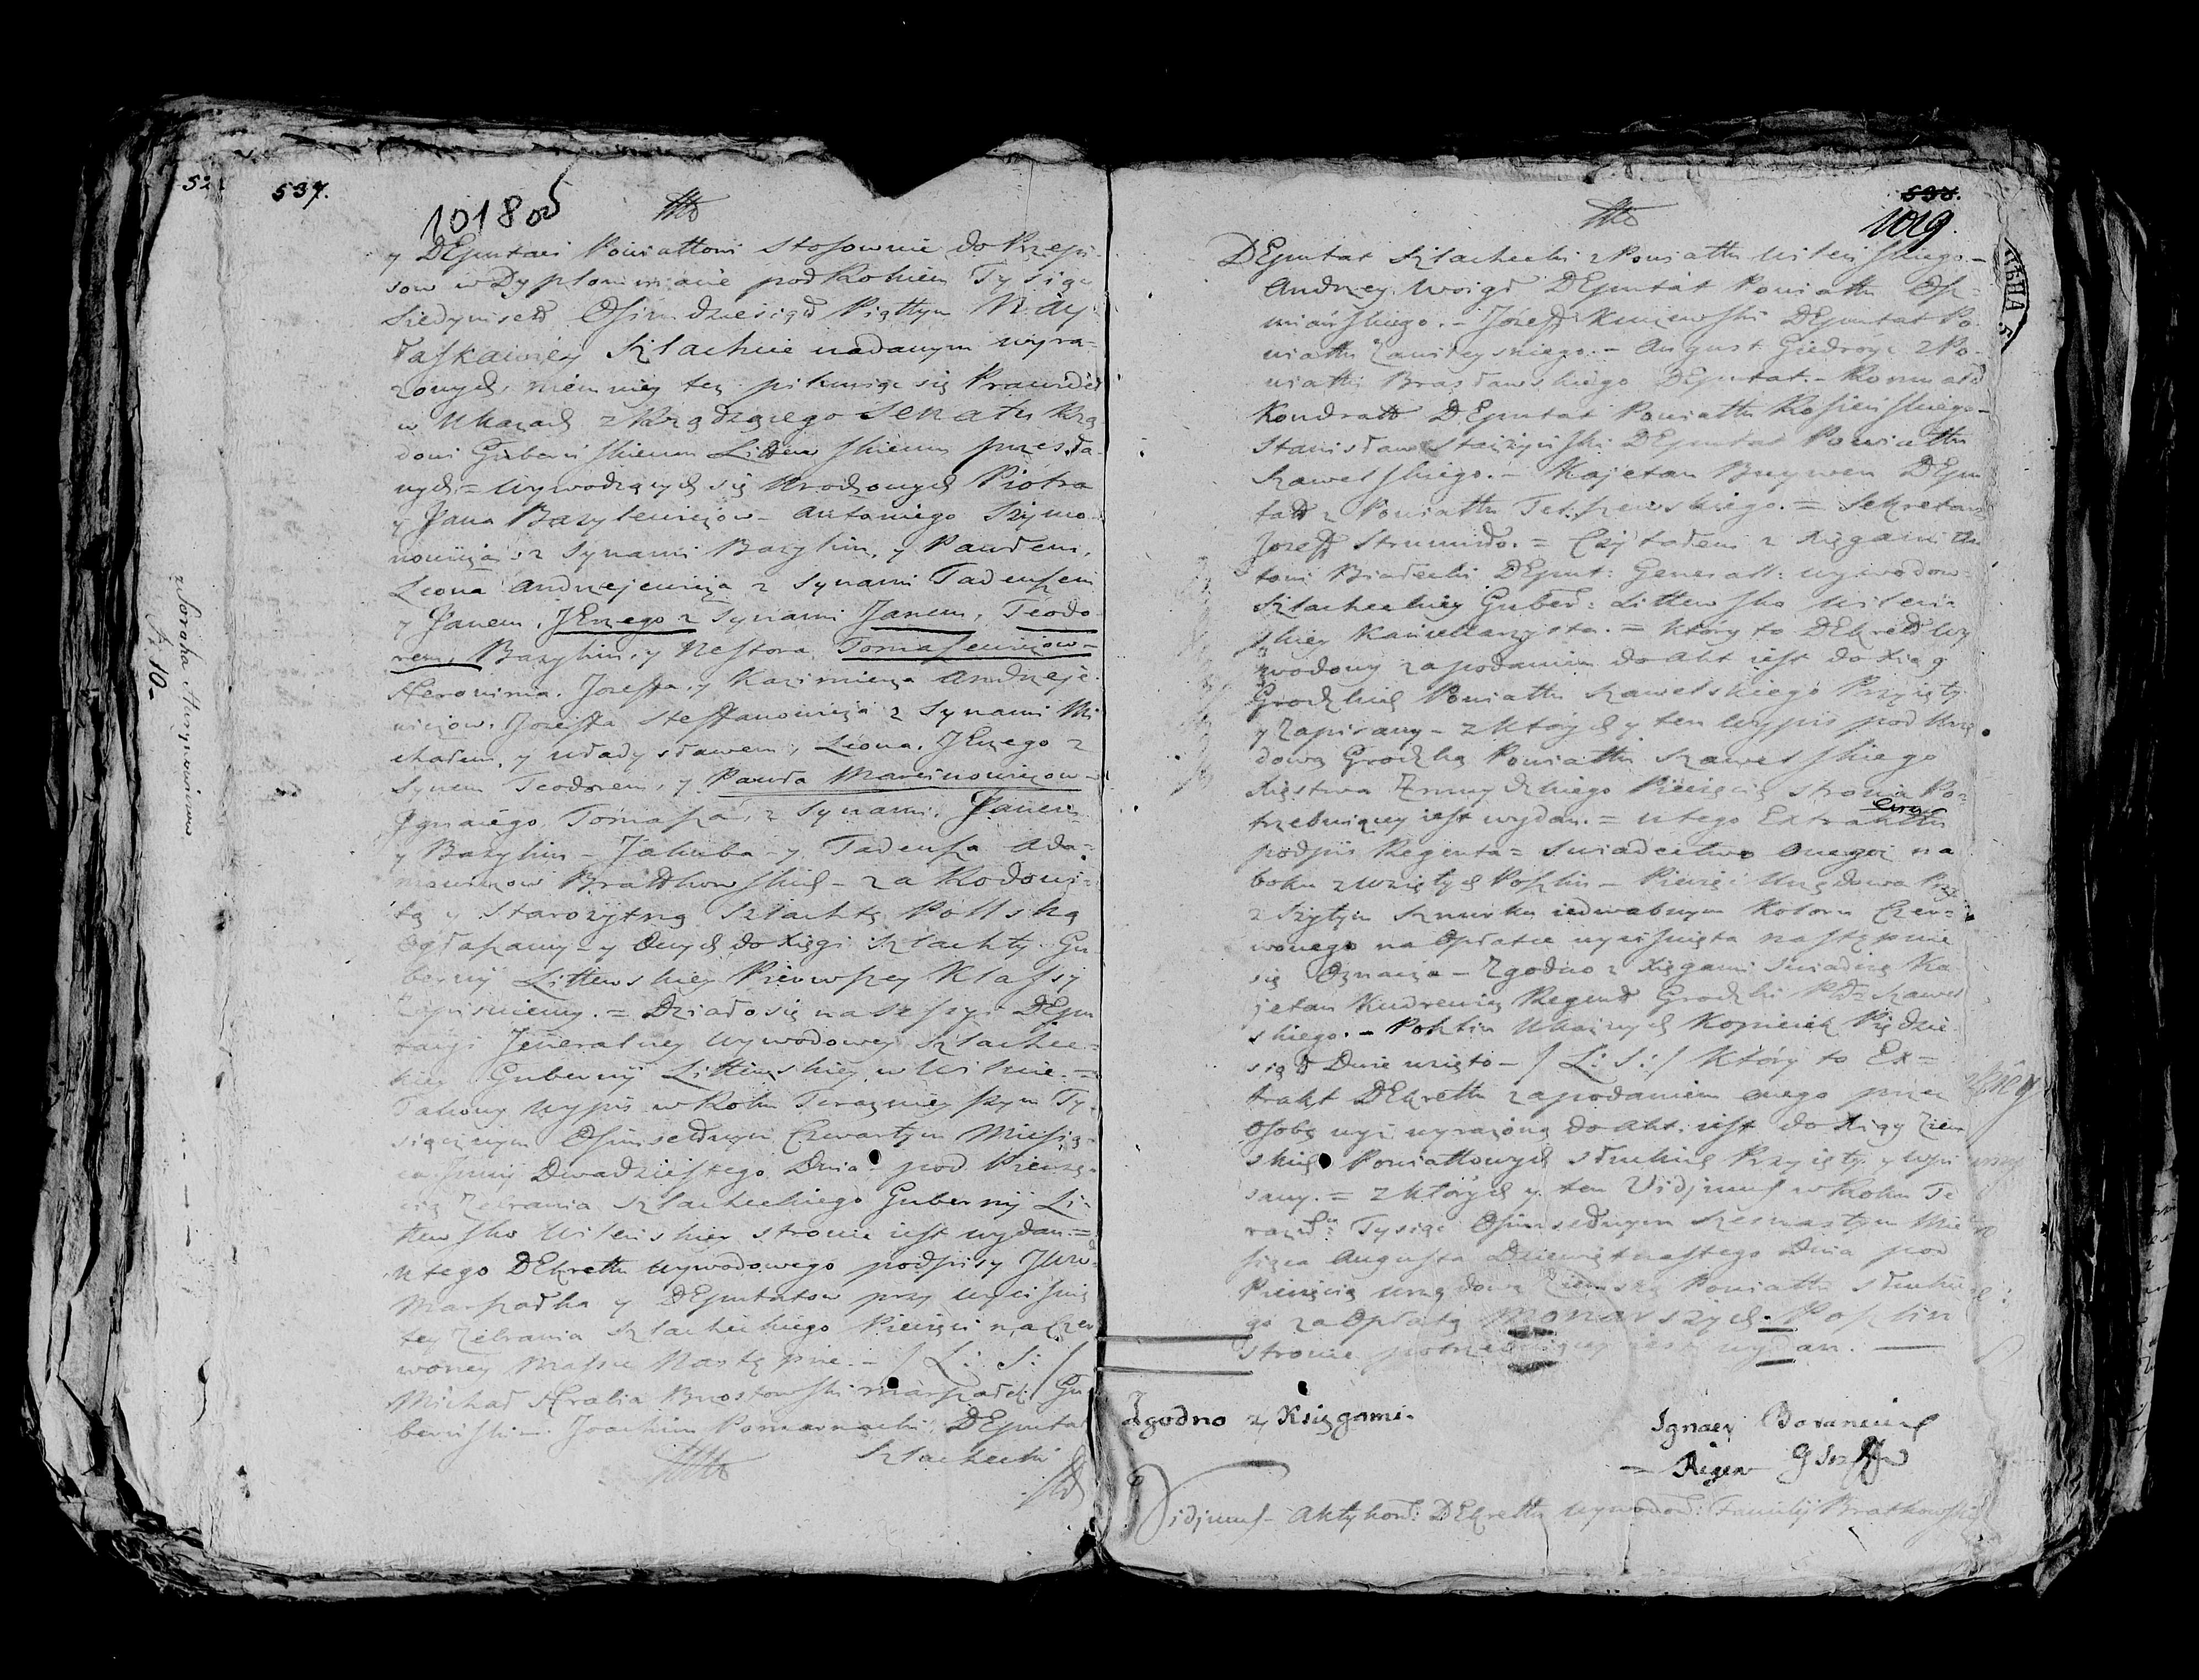 52
537.
1018 об
y DEputaci Powiattowi stosownie do Przepi-
sow w Dyplommacie pod Rokiem Tysiąc
Siedymsetd Osimdziesiąd Piąttym Nay-
łaskawiey Szlachcie nadanym wyra-
zonych, niemniey tez pilnuiąc się Prawideł
w Ukazach z Rządzącego Senatu Rzą
dowi Gubernskiemu Littewskiemu przesła-
nych = wywodzących się Urodzonych Piotra
y Jana Bazylewiczow - Antoniego Szymo-
nowicza z Synami Bazylim, y Pawłem,
Leona Andrzejewicza z Synami Tadeuszem
y Janem, JErzego z Synami Janem, Teodo-
rem, Bazylim, y Nestora Tomaszewiczow -
Heronima, Jozeffa, y Kazimierza Andrzeje-
wiczow, Jozeffa Steffanowicza z Synami Mi
chałem, y Władysławem, Leona, JErzego z
Synem Teodorem, y Pawła Marcinowiczow -
Jgnacego, Tomasza, z Synami, Janem
y Bazylim - Jakuba - y Tadeusza Ada-
mowiczow Brattkowskich - za Rodowi-
tą y Starozytną Szlachtę Polską
Ogłaszamy - y Onych do Xięgi Szlachty Gu-
bernij Littewskiey Pierwszey Klassy
Zapisuiemy. = Działo się na Sessyi DEpu
tacyi Jeneralney Wywodowey Szlachec-
kiey Gubernij Littewskiey w Wilnie. =
Takowy Wypis w Roku Teraznieyszym Ty-
siącznym Osimsednym Czwartym Miesią-
ca Junij Dwadziestego Dnia - pod Pieczę-
cią Zebrania Szlacheckiego Gubernij Li-
ttewsko Wilenskiey stronie iest wydan. =
U tego DEkrettu Wywodowego podpisy JWW
Marszałka y DEputatow przy wycisnię
tey Zebrania Szlacheckiego Pieczęci na Czer
woney Massie Następne. - / L: S: /
Michał Hrabia Brzostowski Marszałek Gu
bernski - Joachim Pomarnacki DEputat
Szlachecki
z Soroka Hurynowiczow
N. 10.
538.
1019.
DEputat Szlachecki z Powiattu Wilenskiego -
Andrzey Woigd DEputat Powiattu Osz-
mianskiego. - Jozeff Kuczewski DEputat Po-
wiattu Zawileyskiego. - August Giedroyc z Po-
wiattu Brasławskiego DEputat. - Konrad
Kondratt DEputat Powiattu Rosienskiego -
Stanisław Staszynski DEputat Powiattu
Szawelskiego. - Kajetan Buywen DEpu
tatt z Powiattu Telszewskiego. = Sekretarz
Jozeff Strumiłło. = Czytałem z Xięgami An
toni Białecki DEput: Generall: wywodow
Szlacheckiey Guber: Littewsko Wilen-
skiey Kancellarzysta. = Ktory to DEkret Wy
wodowy zapodaniem do Akt iest do Xiąg
Grodzkich Powiattu Szawelskiego Przyięty
y Zapisany - z Ktorych y ten Wypis pod Urzę
dową Grodzką Powiattu Szawelskiego
Xięstwa Zmuydzkiego Pieczęcią Stronie Po-
trzebuiącey iest wydan. = U tego Extraktu
podpis Regenta = Swiadectwo Onegoż na
boku zwziętych Poszlin - Pieczęć Urzędowa Przy
z Szytym Sznurku iedwabnym Koloru Czer-
wonego na Opłatce wycisnięta następnie
się Oznacza - Zgodno z Xięgami Swiadczę Ka
jetan Kudrewicz Regent Grodzki Ptu Szawel
skiego. - Poszlin Ukaznych Kopieiek Pięddzie
siąt Dwie wzięto - / L: S: / Ktory to Ex=
trakt DEkrettu zapodaniem onego przez
Osobę wyż wyrazoną do Akt iest do Xiąg Ziem
skich Powiattowych Słuckich Przyięty y wpi
sany. = z Ktorych y ten Vidjmus w Roku Te
Tysiąc Osimsednym Szesnastym Mie
siąca Augusta Dziewiętnastego Dnia pod
Pieczęcią Urzędową Ziemską Powiattu Słuckie
go za Opłatą Monarszych Poszlin
Stronie potrzebuiącey iest wydan. -
Zgodno z Księgami.
Ignacy
Regen
Vidjmus - Aktykow: DEkrettu wywodow: Familij Bratkowskich